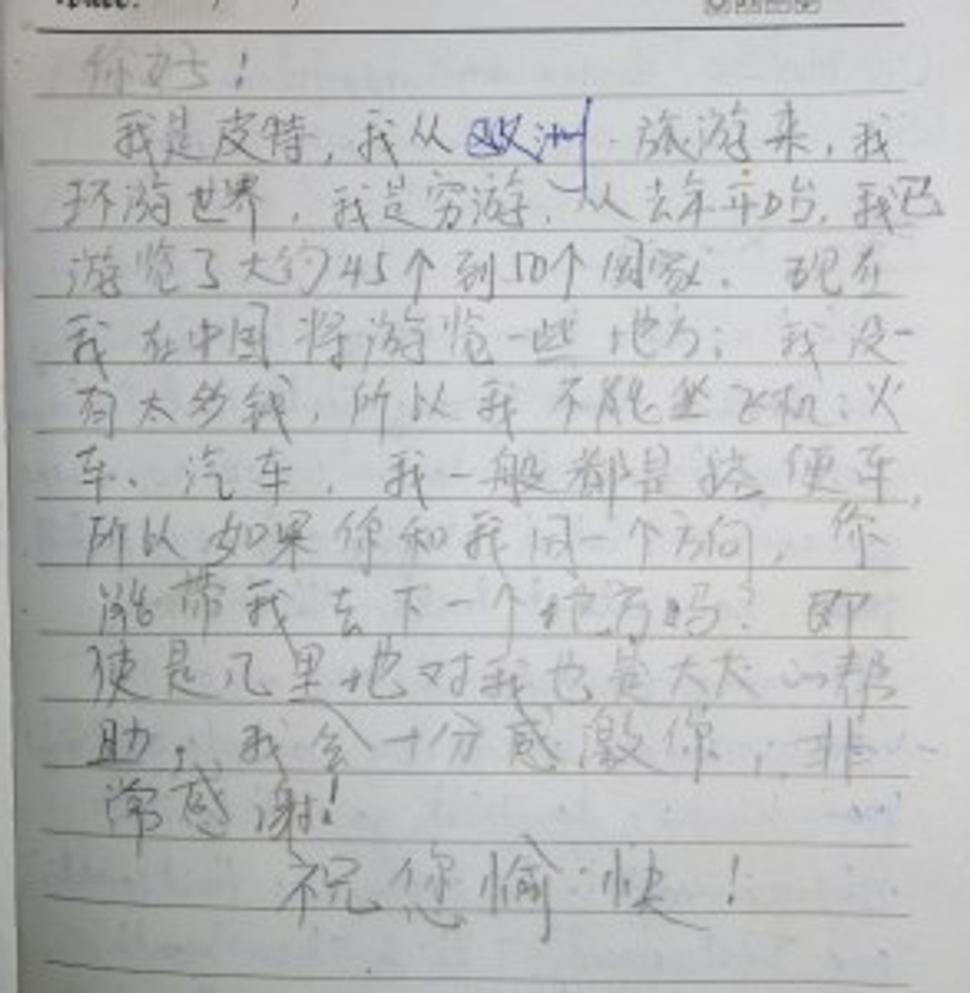 Date:
你好！
我是皮特，我从欧洲旅游来，我
环游世界，我是穷游，从去年开始，我已
游览了大约45个到50个国家。现在
我在中国将游览一些地方；我没
有太多钱，所以我不能坐飞机；火
车、汽车，我一般都是搭便车，
所以如果你和我同一个方向，你
能带我去下一个地方吗？即
使是几里地对我也是大大的帮
助，我会十分感激你，非
常感谢！
祝您愉快！